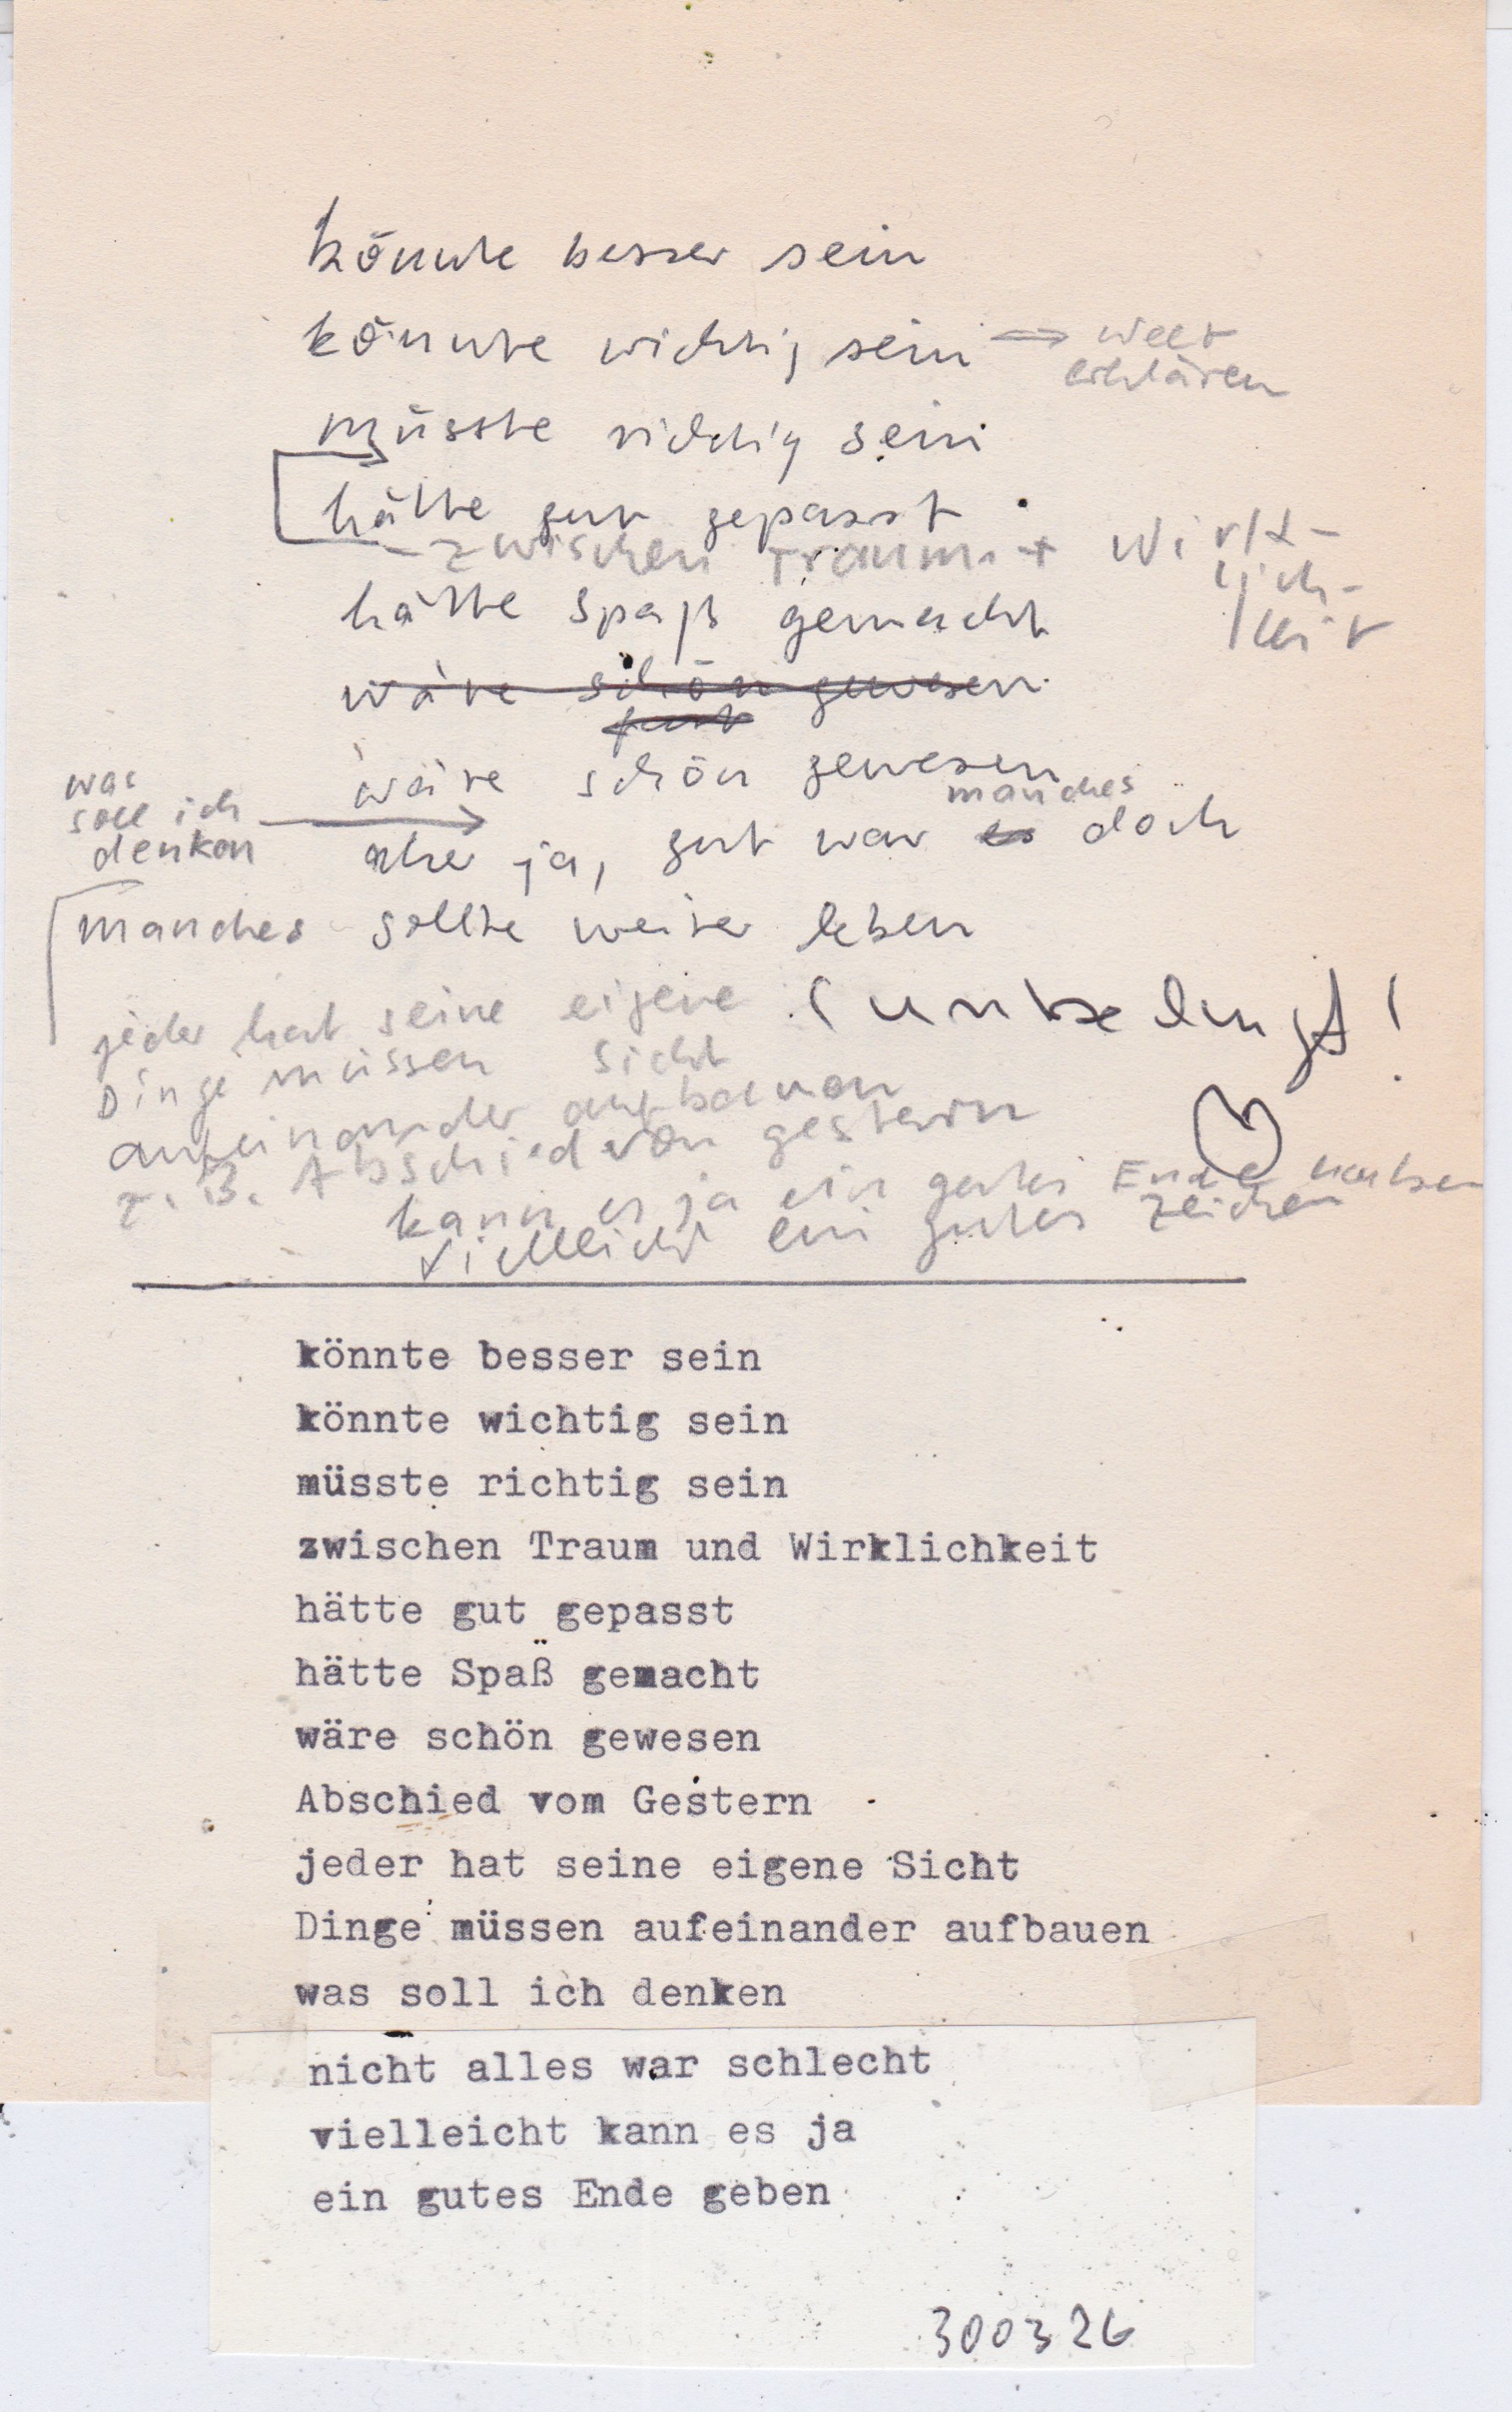 könnte besser sein
könnte wichtig sein
Welt
erklären
müsste richtig sein
hätte gut gepasst
zwischen Traum + Wirk-
lich-
keit
hätte Spaß gemacht
wäre schön gewesen
gut
wäre schön gewesen
was
soll ich
denken
manches
aber ja, gut war es doch
manches sollte weiter leben
jeder hat seine eigene (unbedingt!
Sicht
Dinge müssen
aufeinander aufbauen
z.B. Abschied von gestern
kann es ja ein gutes Ende haben
vielleicht ein gutes Zeichen
könnte besser sein
könnte wichtig sein
müsste richtig sein
zwischen Traum und Wirklichkeit
hätte gut gepasst
hätte Spaß gemacht
wäre schön gewesen
Abschied vom Gestern
jeder hat seine eigene Sicht
Dinge müssen aufeinander aufbauen
was soll ich denken
nicht alles war schlecht
vielleicht kann es ja
ein gutes Ende geben
300326